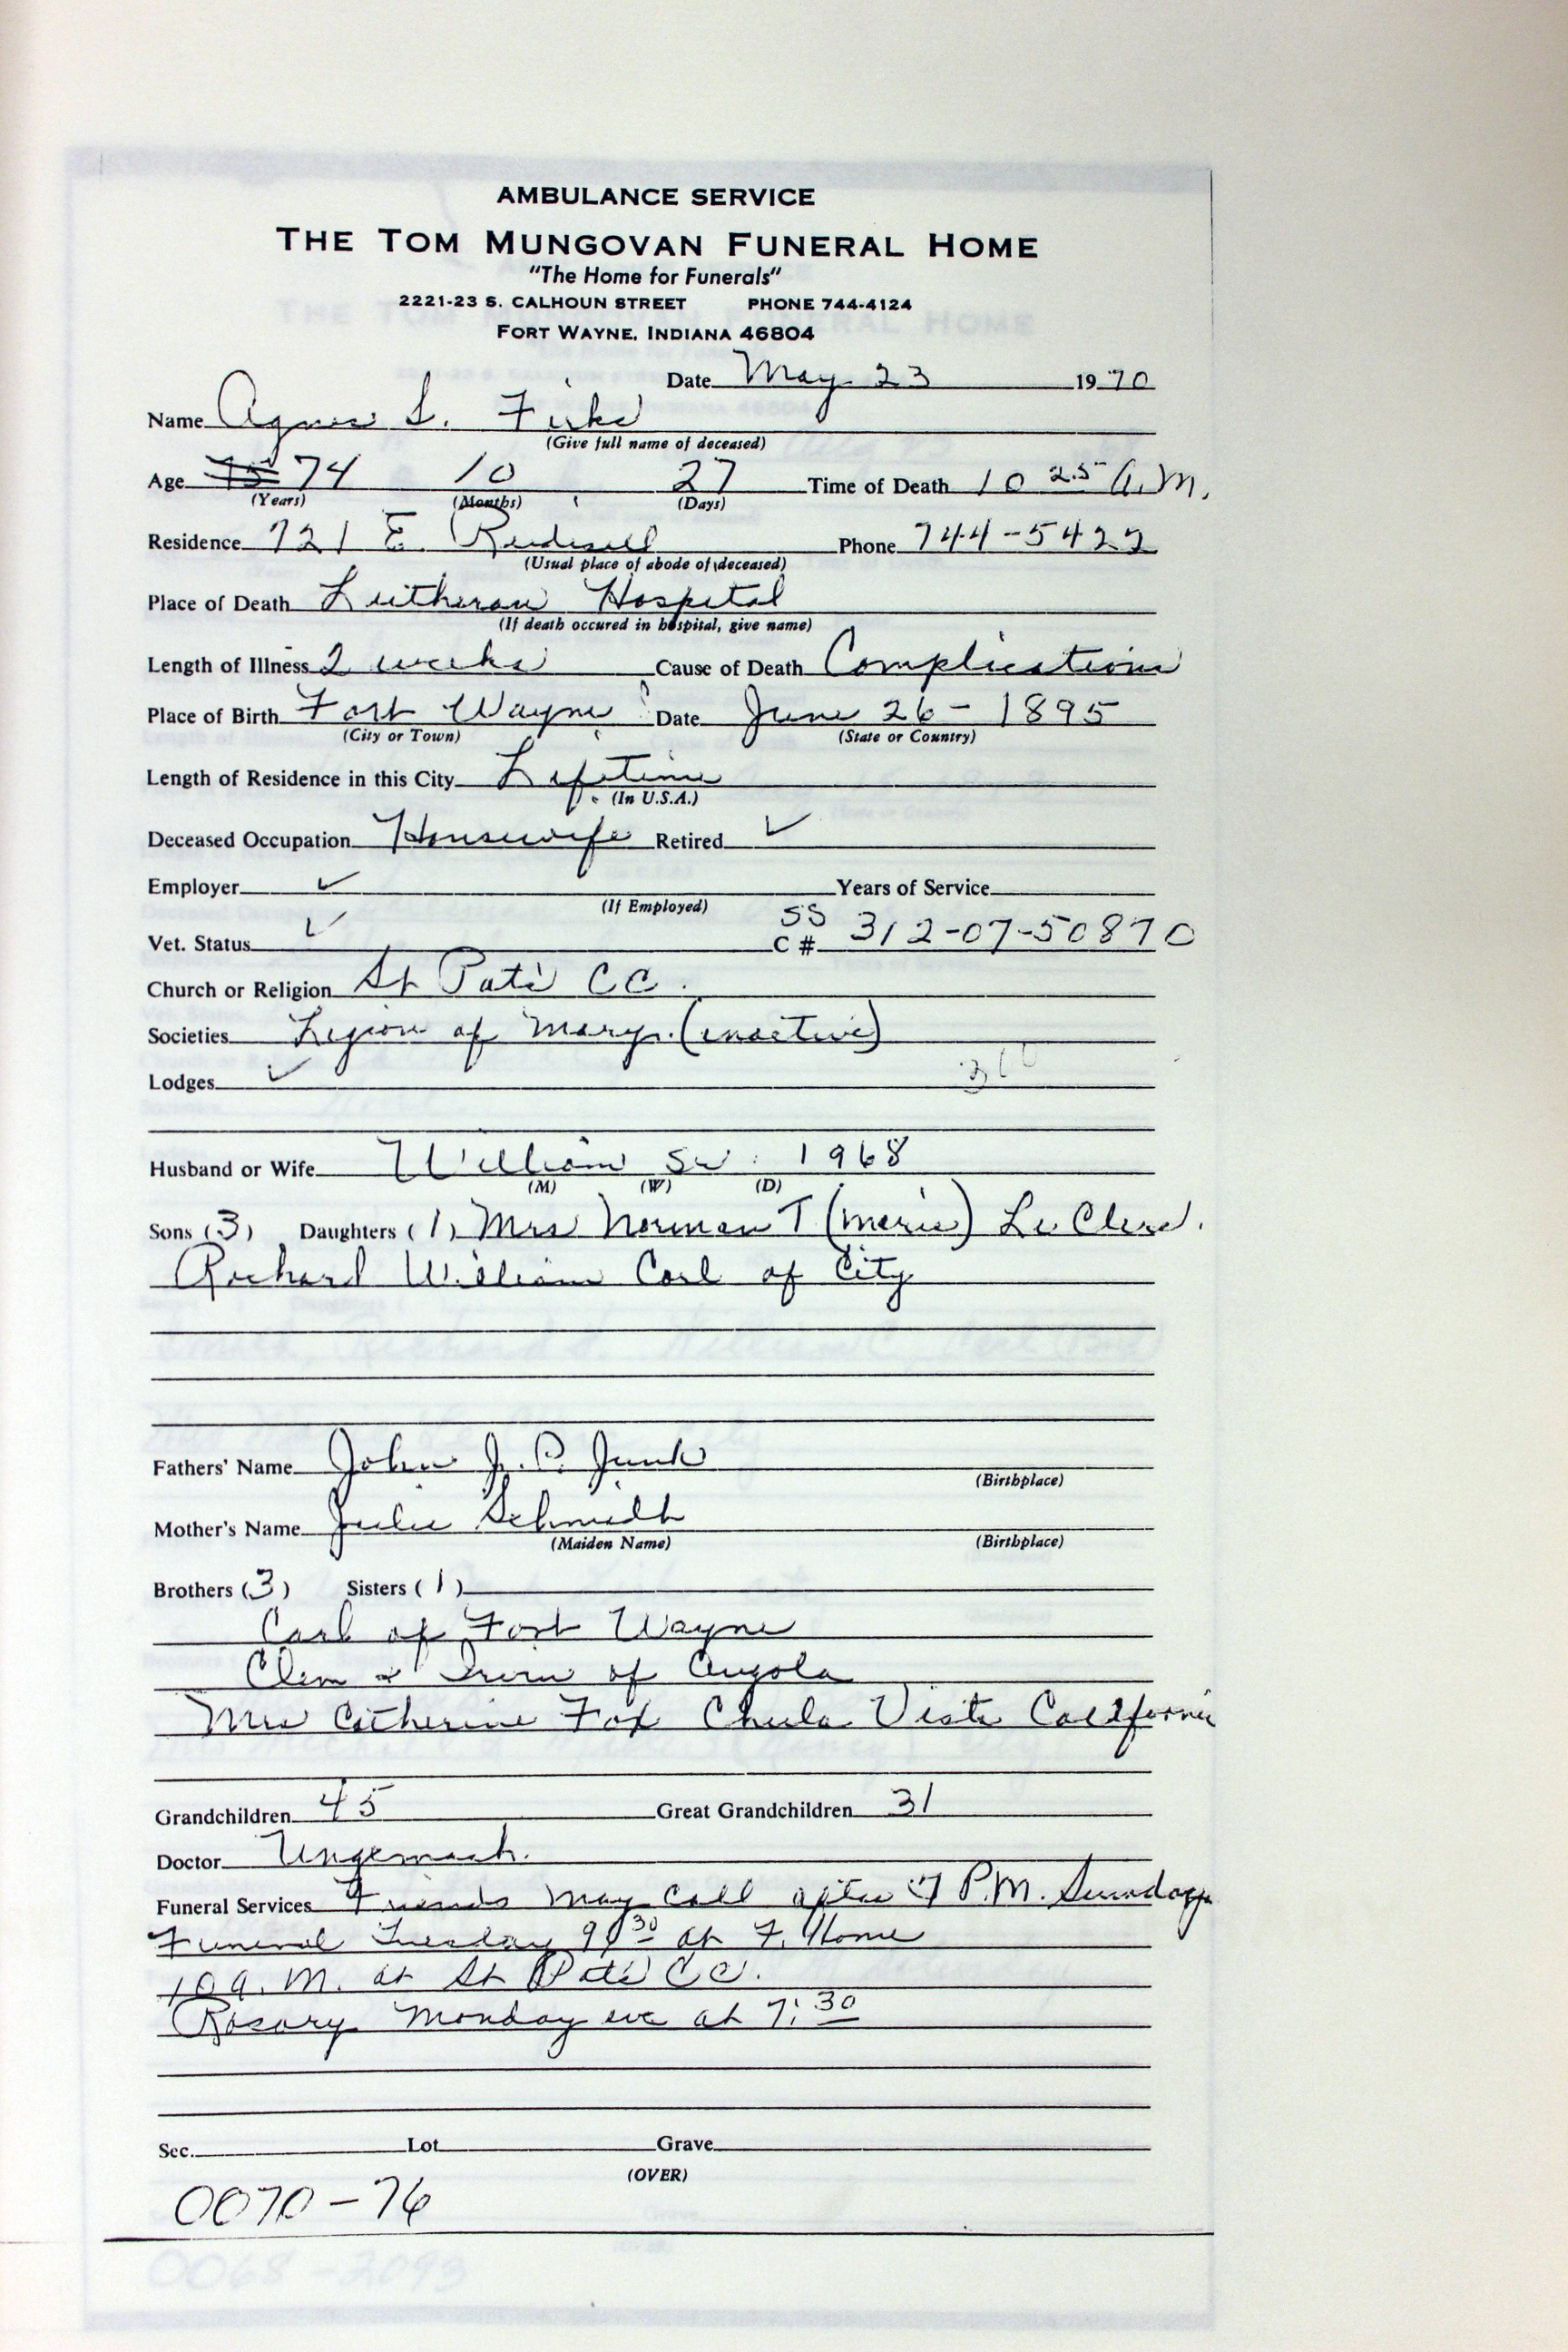 AMBULANCE SERVICE
THE TOM MUNGOVAN FUNERAL HOME
"The Home for Funerals"
2221-23 S. CALHOUN STREET PHONE 744-4124
FORT WAYNE, INDIANA 46804
Date May 23 1970
Name Agnes L.
(Give full name of deceased)
Age 74 10 27 Time of Death 10 25 A.M.
(Years) (Months) (Days)
Residence 721 E. Rudisill Phone 744-5422
(Usual place of abode of deceased)
Place of Death Lutheran Hospital
(If death occured in hospital, give name)
Length of Illness 2 weeks Cause of Death Complications
Place of Birth Fort Wayne Date June 26 - 1895
(City or Town) (State or Country)
Length of Residence in this City Lifetime
(In U.S.A.)
Deceased Occupation Housewife Retired ✓
Employer ✓ Years of Service
(If Employed)
SS
Vet. Status ✓ C # 312-07-50870
Church or Religion St Pat's CC.
Societies Legion of Mary. (inactive)
Lodges ✓
Husband or Wife William Sr. 1968
(M) (W) (D)
Sons (3) Daughters (1) Mrs Norman T (Marie) Le Clerc.
Richard William Carl of City
Fathers' Name John J. P. Junk
(Birthplace)
Mother's Name Julie Schmidt
(Maiden Name) (Birthplace)
Brothers (3) Sisters (1)
Carl of Fort Wayne
Clem & of Angola
Mrs Catherine Fox Chula Vista California
Grandchildren 45 Great Grandchildren 31
Doctor Ungemach.
Funeral Services Friends may call after 7 P.M. Sunday
Funeral Tuesday 9 30 at F. Home
10 A.M. at St Pat's CC.
Rosary Monday eve at 7:30
Sec. Lot Grave
(OVER)
0070-76